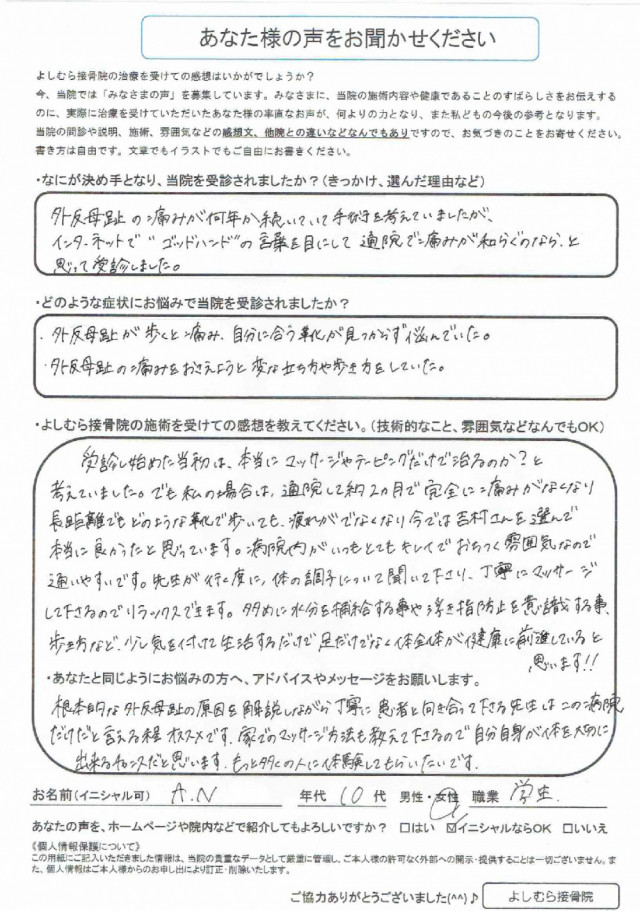 あなた様の声をお聞かせください
よしむら接骨院の治療を受けての感想はいかがでしょうか？
今、当院では「みなさまの声」を募集しています。みなさまに、当院の施術内容や健康であることのすばらしさをお伝えする
のに、実際に治療を受けていただいたあなた様の率直なお声が、何よりの力となり、また私どもの今後の参考となります。
当院の問診や説明、施術、雰囲気などの感想文、他院との違いなどなんでもありですので、お気づきのことをお寄せください。
書き方は自由です。文章でもイラストでもご自由にお書きください。
・なにが決め手となり、当院を受診されましたか？（きっかけ、選んだ理由など）
外反母趾の痛みが何年か続いていて手術を考えていましたが、
インターネットで"ゴッドハンド"の言葉を目にして通院で痛みが和らぐのなら、と
思って受診しました。
・どのような症状にお悩みで当院を受診されましたか？
・外反母趾が歩くと痛み、自分に合う靴が見つからず悩んでいた。
・外反母趾の痛みをおさえようと変な立ち方や歩き方をしていた。
・よしむら接骨院の施術を受けての感想を教えてください。（技術的なこと、雰囲気などなんでもOK）
受診し始めた当初は、本当にマッサージやテーピングだけで治るのか？と
考えていました。でも私の場合は、通院して約2カ月で完全に痛みがなくなり
長距離でもどのような靴で歩いても、疲れがでなくなり今では吉村さんを選んで
本当に良かったと思っています。病院内がいつもとてもキレイでおちつく雰囲気なので
通いやすいです。先生が行く度に、体の調子について聞いて下さり、丁寧にマッサージ
して下さるのでリラックスできます。多めに水分を補給する事や浮き指防止を意識する事、
歩き方など、少し気を付けて生活するだけで足だけでなく体全体が健康に前進していると
思います!!
・あなたと同じようにお悩みの方へ、アドバイスやメッセージをお願いします。
根本的な外反母趾の原因を解説しながら丁寧に患者と向き合って下さる先生はこの病院
だけだと言える程オススメです。家でのマッサージ方法も教えて下さるので自分自身が体を大切に
出来るチャンスだと思います。もっと多くの人に体験してもらいたいです。
お名前（イニシャル可） A.N 年代 10 代 男性・女性 職業 学生
あなたの声を、ホームページや院内などで紹介してもよろしいですか？ □はい ☑イニシャルならOK □いいえ
《個人情報保護について》
この用紙にご記入いただきました情報は、当院の貴重なデータとして厳重に管理し、ご本人様の許可なく外部への開示・提供することは一切ございません。ま
た、個人情報はご本人様からのお申し出により訂正・削除いたします。
ご協力ありがとうございました(^^)♪ よしむら接骨院